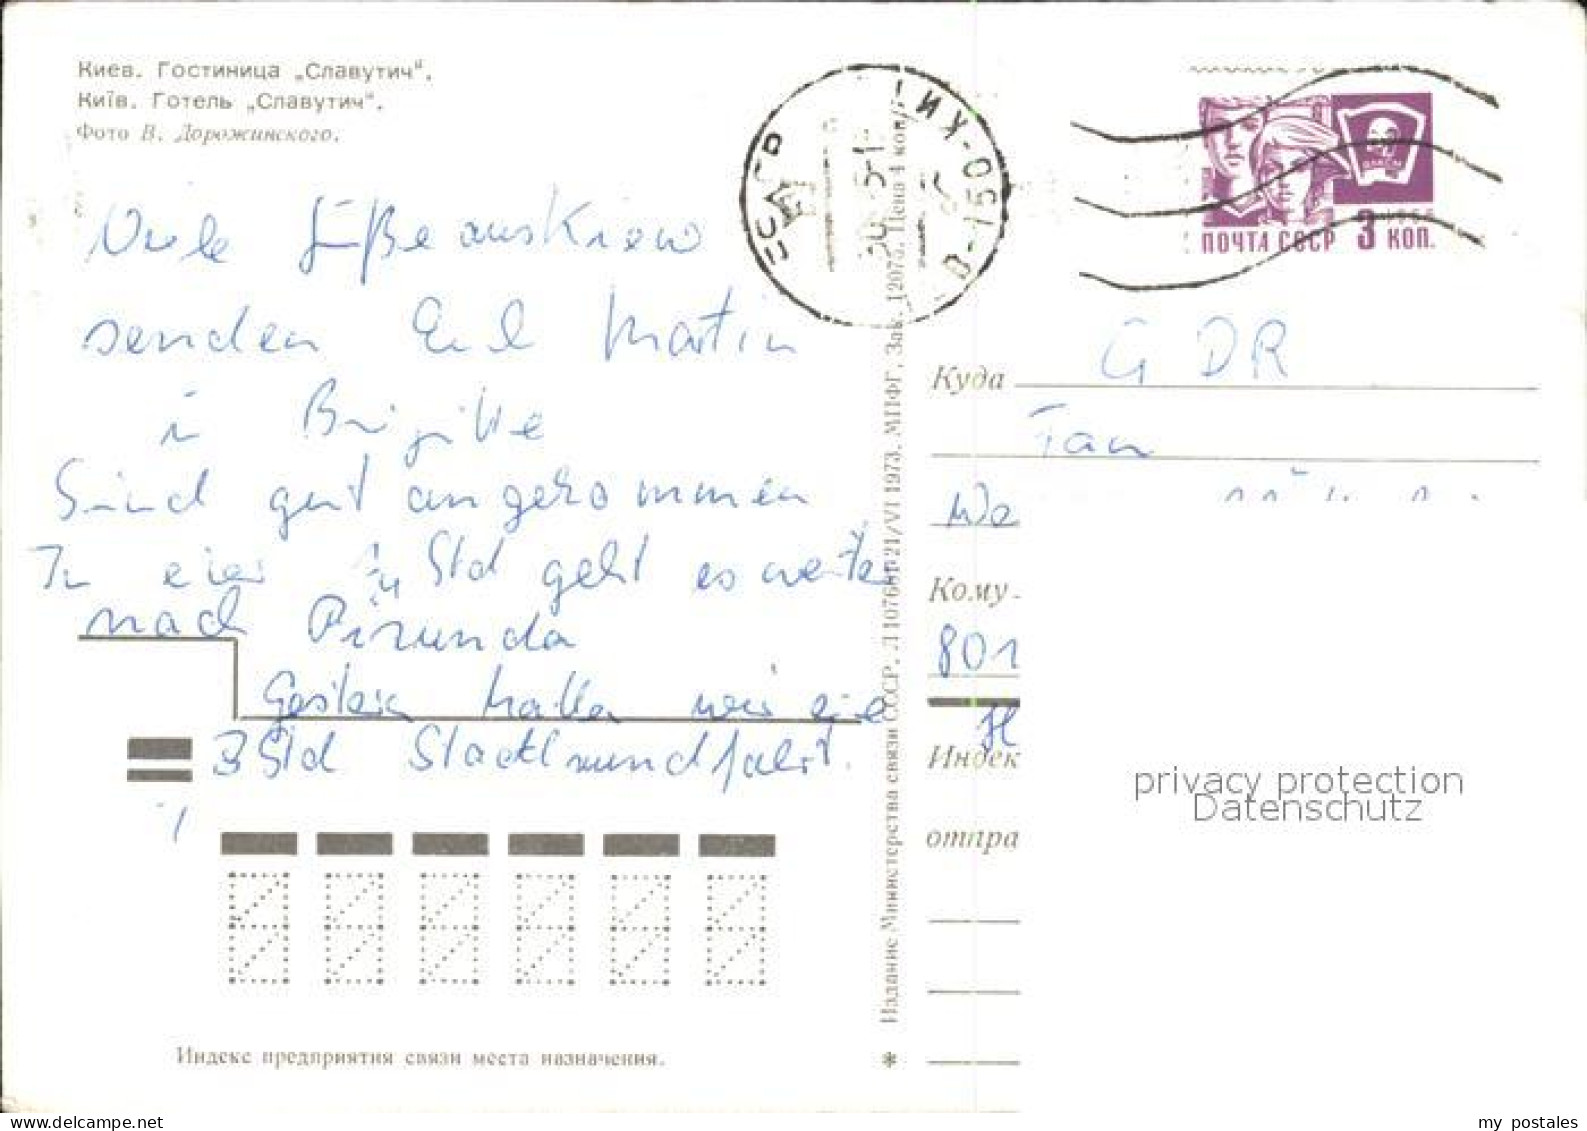 Киев. Гостиница „Славутич“.
Київ. Готель „Славутич“.
Фото В. Дорожинского.
Viele Grüße aus Kiew
senden Martin
Brigitte
Sind gut angekommen
In einer Std geht es weiter
nach Pizunda
Gestern hatten wir eine
3 Std Stadtrundfahrt.
Индекс предприятия связи места назначения.
Издание Министерства связи СССР. Л 107600 21/VI 1973. МПФГ. Зак. 12075. Цена 4 коп.
ПОЧТА СССР 3 КОП.
ВЛКСМ
1966
Куда GDR
Fam
Кому
801
Индек
H
отпра
privacy protection
Datenschutz
my postales